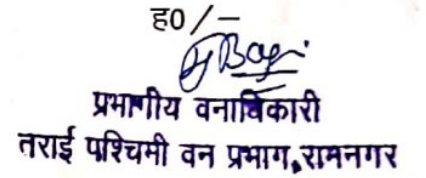 ह0/-
प्रभागीय वनाधिकारी
तराई पश्चिमी वन प्रभाग,रामनगर